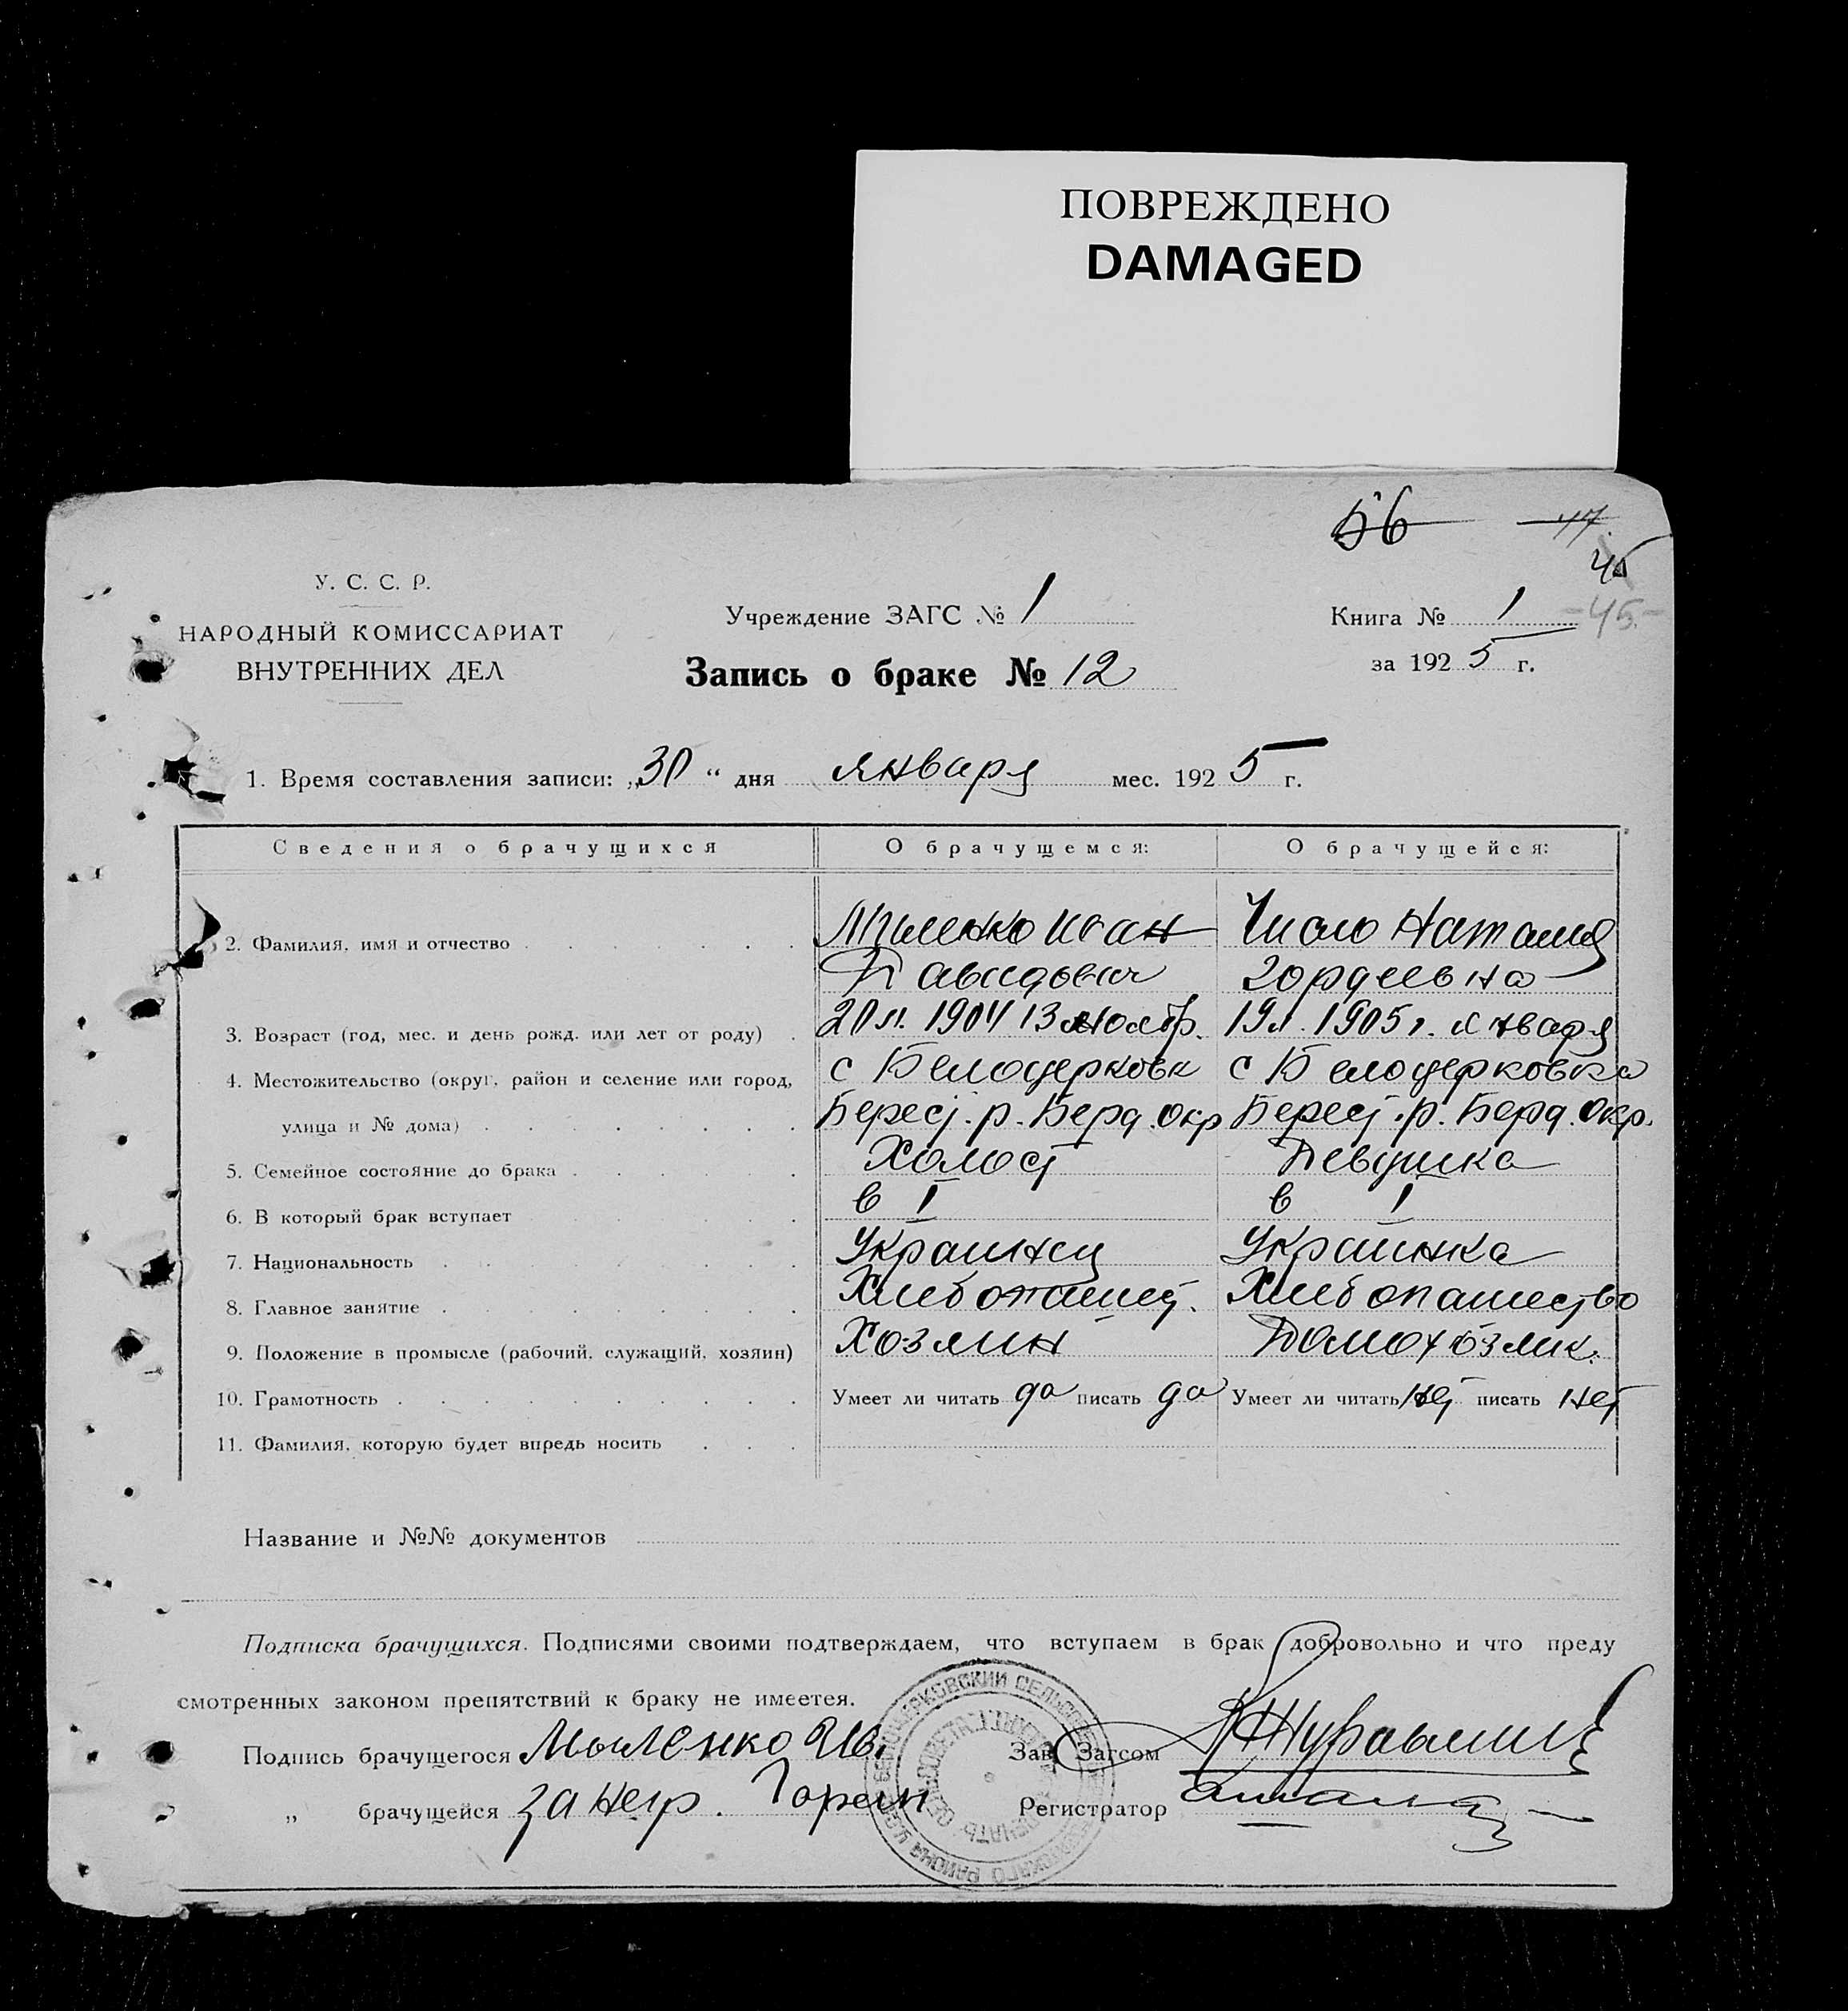 ПОВРЕЖДЕНО
DAMAGED
56 47
45
У. С. С. Р.
НАРОДНЫЙ КОМИССАРИАТ
ВНУТРЕННИХ ДЕЛ
Учреждение ЗАГС № 1
Запись о браке № 12
Книга № 1 -45-
за 1925 г.
1. Время составления записи: „30“ дня января мес. 1925 г.
Сведения о брачущихся О брачущемся: О брачущейся:
2. Фамилия, имя и отчество Мыленко Иван Число Наталия
Давидович Гордеевна
3. Возраст (год, мес. и день рожд. или лет от роду) 20 л. 1904 13 ноябр. 19 л. 1905 г. января
4. Местожительство (округ, район и селение или город, с Белоцерковк с Белоцерковка
улица и № дома) Берест. р. Берд. Окр Берест. р. Берд. Окр.
5. Семейное состояние до брака Холост Девушка
6. В который брак вступает в I в I
7. Национальность Украинец Украинка
8. Главное занятие Хлебопашест. Хлебопашество
9. Положение в промысле (рабочий, служащий, хозяин) Хозяин Домохозяик.
10. Грамотность Умеет ли читать да писать да Умеет ли читать нет писать нет
11. Фамилия, которую будет впредь носить
Название и №№ документов
Подписка брачущихся. Подписями своими подтверждаем, что вступаем в брак добровольно и что преду
смотренных законом препятствий к браку не имеетея.
Подпись брачущегося Мыленко Ив. Зав. Загсом
„ брачущейся за негр. Регистратор